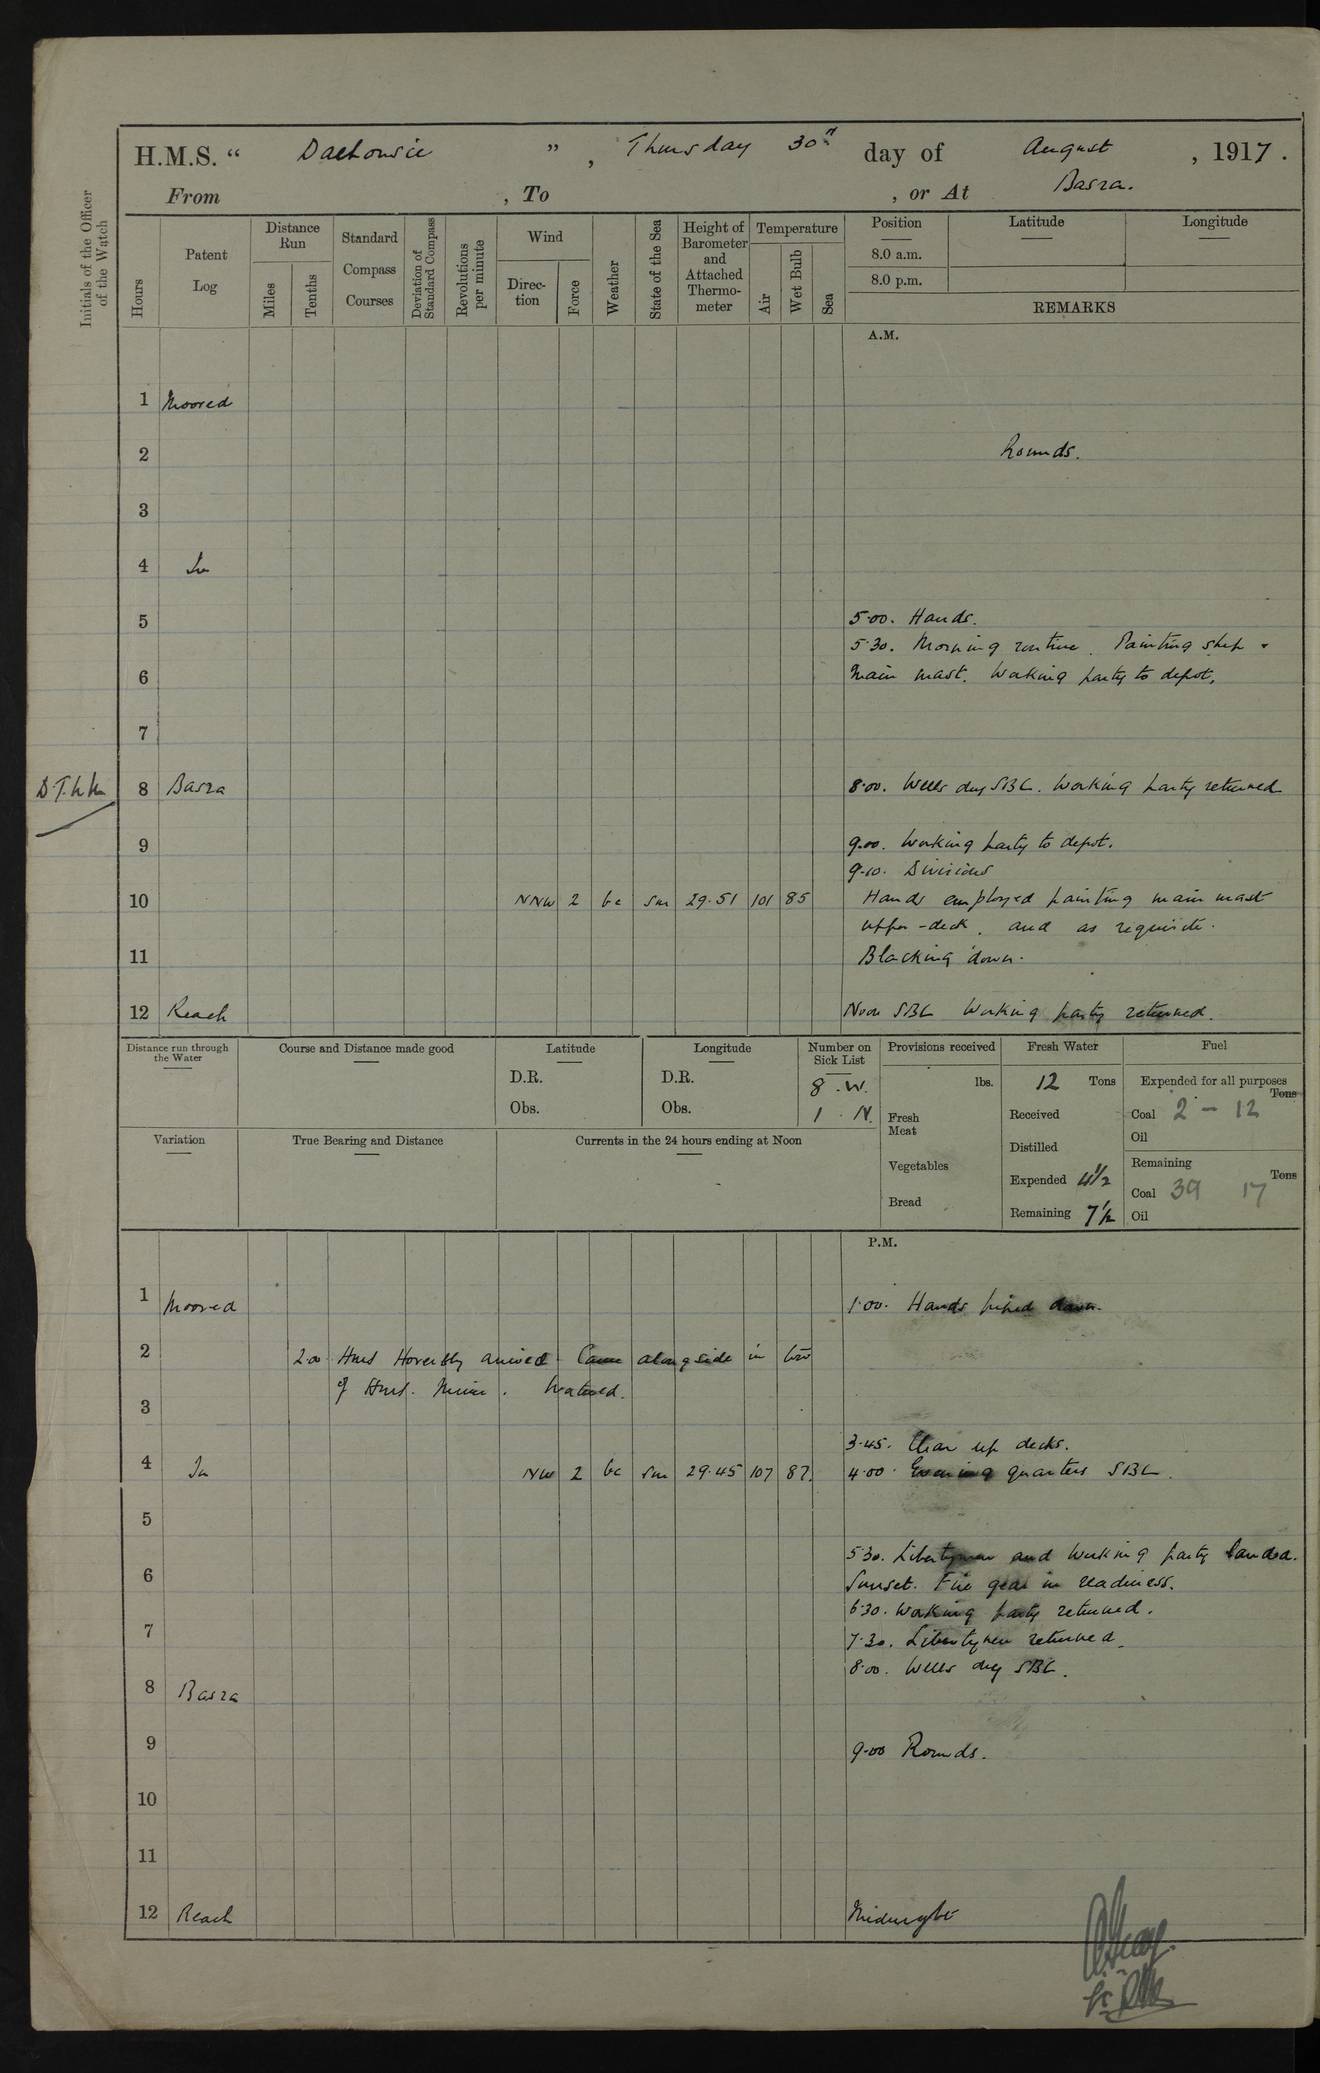 H.M.S. “ Dalhousie ” , Thursday 30th day of August , 1917 .
From , To , or At Basra.
Initials of the Officer of the Watch
Hours
Patent Log
Distance Run
Miles
Tenths
Standard Compass Courses
Deviation of Standard Compass
Revolutions per minute
Wind
Direction
Force
Weather
State of the Sea
Height of Barometer and Attached Thermometer
Temperature
Air
Wet Bulb
Sea
Position Latitude Longitude
8.0 a.m.
8.0 p.m.
REMARKS
A.M.
1 Moored
2 Rounds.
3
4 In
5 5.00. Hands.
5.30. Morning routine. Painting ship &
6 Main mast. Working party to depot.
7
8 Basra 8.00. Wells dry SBC. Working party returned
9 9.00. Working party to depot.
9.10. Divisions
10 NNW 2 bc sm 29.51 101 85 Hands employed painting main mast
upper-deck, and as requisite.
11 Blacking down.
12 Reach Noon SBC Working party returned.
Distance run through the Water
Course and Distance made good
Latitude
D.R.
Obs.
Longitude
D.R.
Obs.
Number on Sick List
8 . W.
1 . N.
Provisions received
lbs.
Fresh Meat
Vegetables
Bread
Fresh Water
12 Tons
Received
Distilled
Expended 4½
Remaining 7½
Fuel
Expended for all purposes
Tons
Coal 2 – 12
Oil
Remaining
Tons
Coal 39 17
Oil
Variation
True Bearing and Distance
Currents in the 24 hours ending at Noon
P.M.
1 Moored 1.00. Hands piped down.
2 2.00 HMS arrived Came alongside in
3 of HMS. . Watered.
3.45. Clear up decks.
4 In NW 2 bc sm 29.45 107 87 4.00. Evening quarters SBC.
5
5.30. Libertymen and Working party landed.
6 Sunset. Fire gear in readiness.
6.30. Working party returned.
7 7.30. Libertymen returned.
8.00. Wells dry SBC.
8 Basra
9 9.00 Rounds.
10
11
12 Reach Midnight